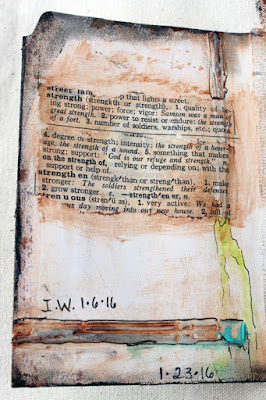 street lam p that lights a street.
strength (strengkth or strength), 1. quality of be
ing strong; power; force; vigor: Samson was a man
great strength. 2. power to resist or endure: the strength
of a fort. 3. number of soldiers, warships, etc.; quota
4. degree or strength; intensity: the strength of a bever
age, the strength of a sound. 5. something that makes
strong; support: God is our refuge and strength. n.
on the strength of, relying or depending on; with the
support or help of.
strength en (strengk′thən or streng′thən), 1. make
stronger: The soldiers strengthened their defenses
2. grow stronger. v. —strength′en er, n.
ren u ous (stren′ū əs), 1. very active: We had a
us day moving into our new house. 2. full of
I.W. 1·6·16
1·23·16